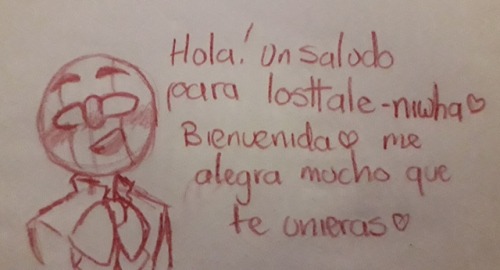 Hola! Un saludo
para losttale-niwha♡
Bienvenida♡ me
alegra mucho que
te unieras♡